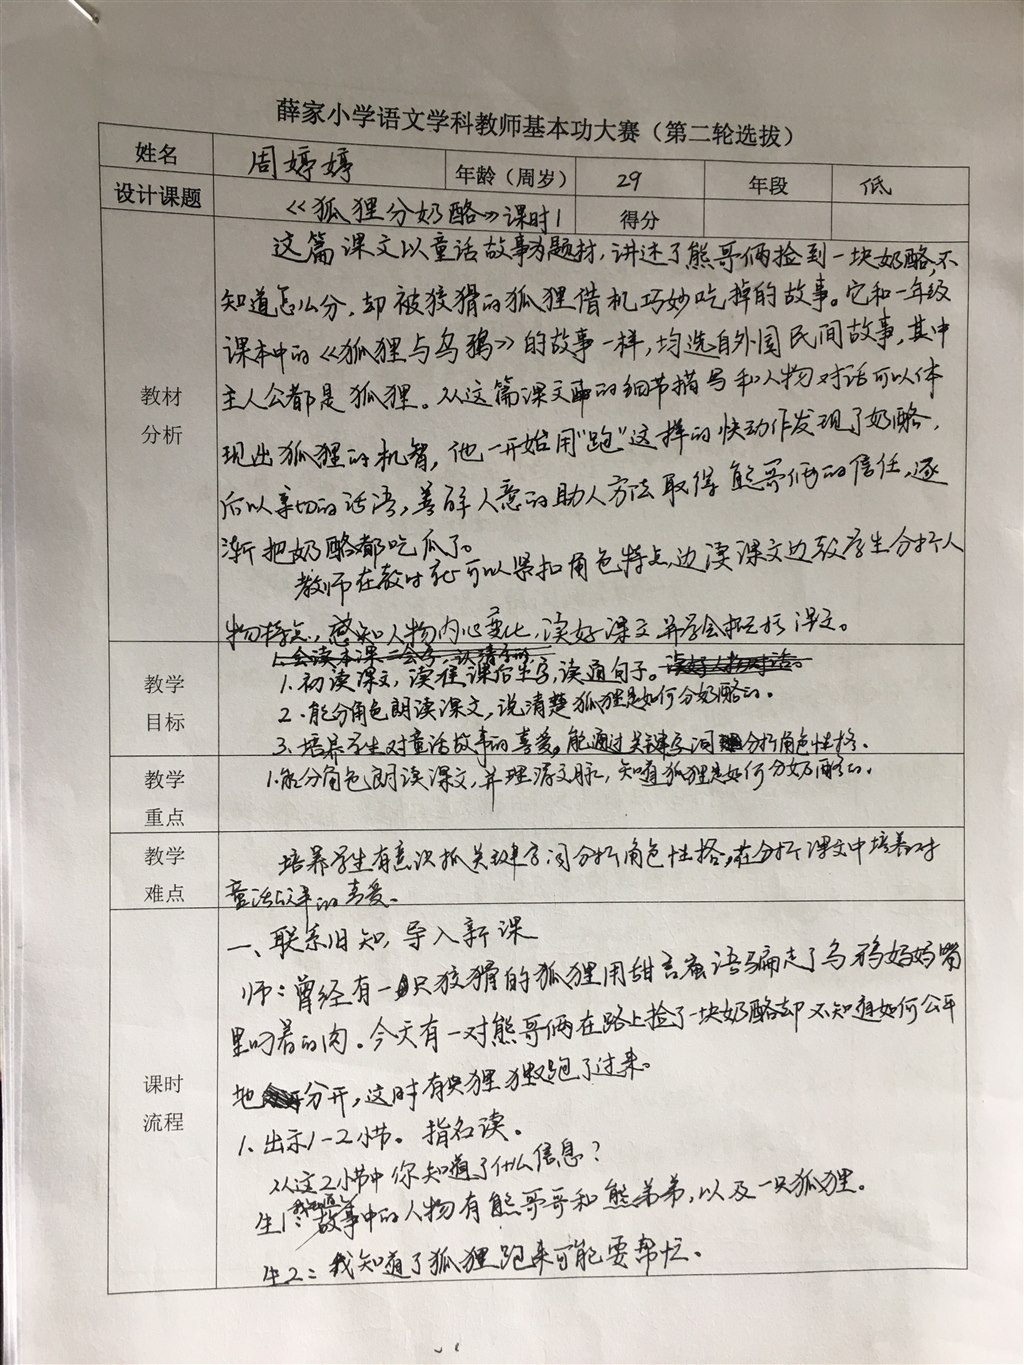 薛家小学语文学科教师基本功大赛（第二轮选拔）
姓名 周婷婷 年龄（周岁） 29 年段 低
设计课题 《狐狸分奶酪》课时1 得分
教材分析
这篇课文以童话故事为题材，讲述了熊哥俩捡到一块奶酪，不
知道怎么分，却被狡猾的狐狸借机巧妙吃掉的故事。它和一年级
课本中的《狐狸与乌鸦》的故事一样，均选自外国民间故事，其中
主人公都是狐狸。从这篇课文中的细节描写和人物对话可以体
现出狐狸的机智，他一开始用"跑"这样的快动作发现了奶酪，
后以亲切的话语，善解人意的助人方法取得熊哥俩的信任，逐
渐把奶酪都吃瓜了。
教师在教时就可以紧扣角色特点，边读课文边教学生分析人
物特点，感知人物内心变化，读好课文并学会概括课文。
教学目标
1.初读课文，读准课后生字，读通句子。
2.能分角色朗读课文，说清楚狐狸是如何分奶酪的。
3.培养学生对童话故事的喜爱，能通过关键字词分析角色性格。
教学重点
1.能分角色朗读课文，并理清文脉，知道狐狸是如何分奶酪的。
教学难点
培养学生有意识抓关键字词分析角色性格，在分析课文中培养对
童话故事的喜爱。
课时流程
一、联系旧知，导入新课
师：曾经有一只狡猾的狐狸用甜言蜜语骗走了乌鸦妈妈嘴
里叼着的肉。今天有一对熊哥俩在路上捡了一块奶酪却不知道如何公平
地分开，这时有只狸狸跑了过来。
1.出示1-2小节。指名读。
从这2小节中你知道了什么信息？
生1：我知道故事中的人物有熊哥哥和熊弟弟，以及一只狐狸。
生2：我知道了狐狸跑来可能要帮忙。